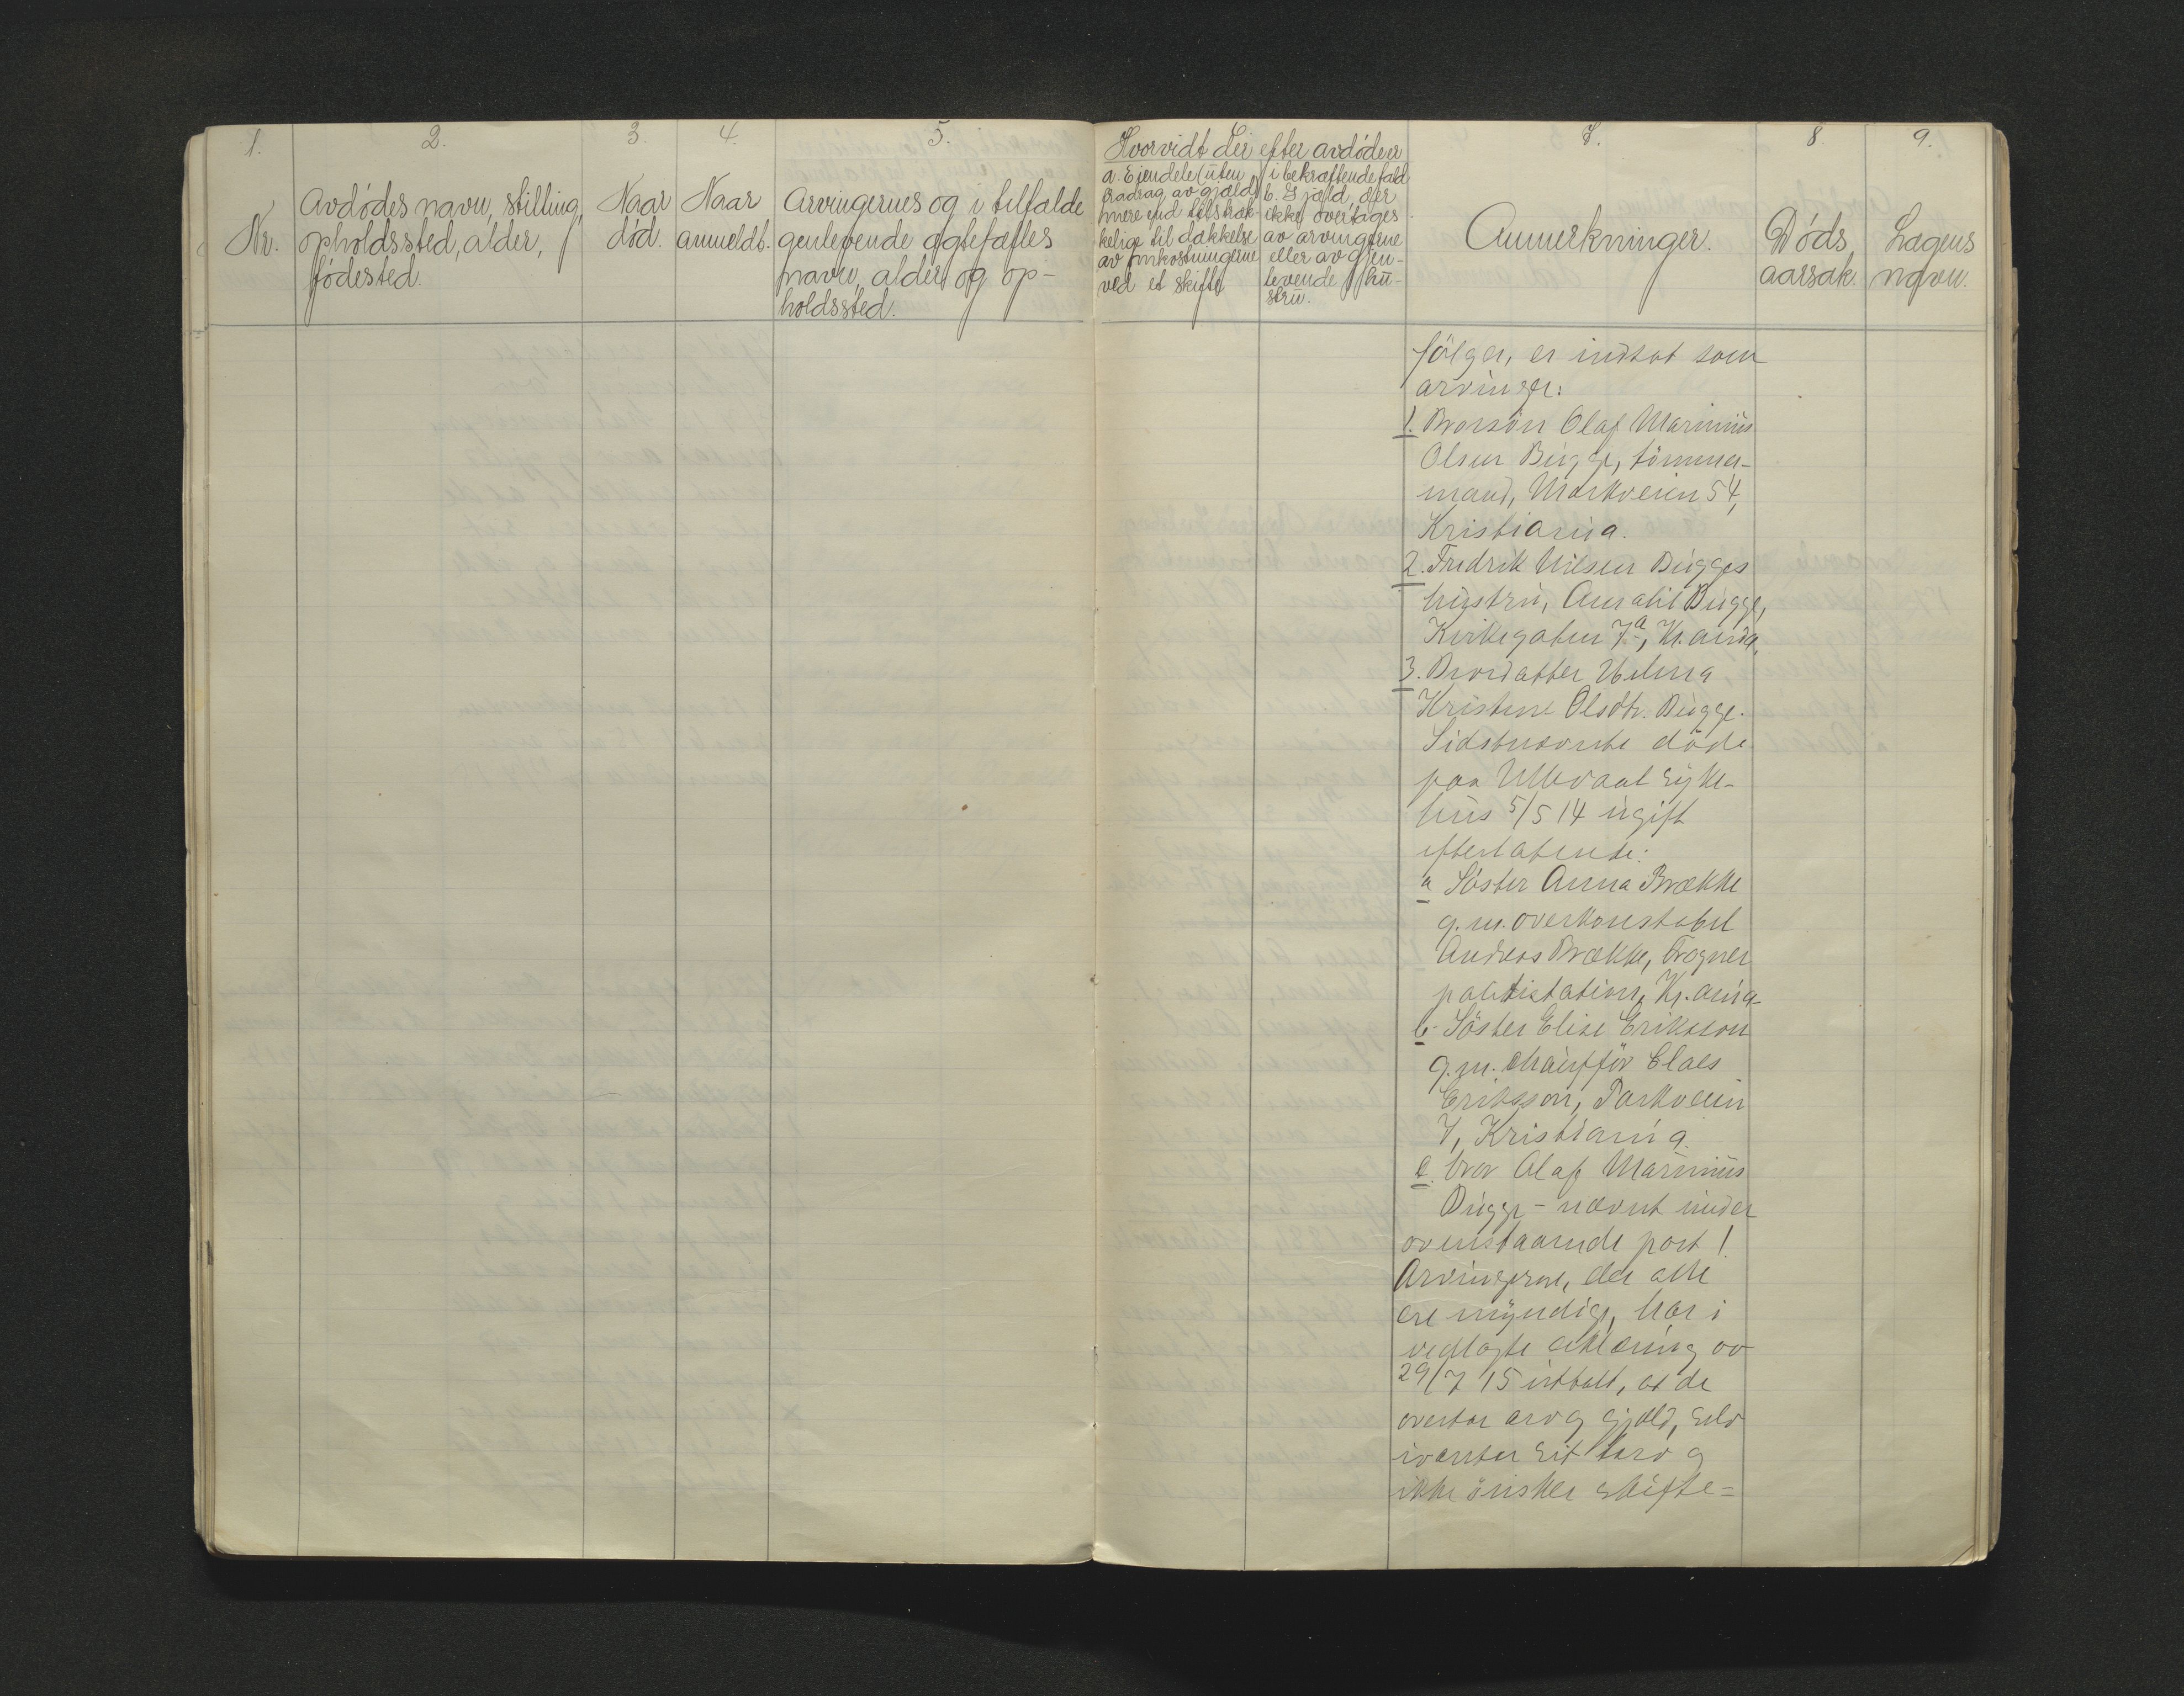 1.
2.
3.
4.
5.
7.
8.
9.
Nr.
Avdødes navn, stilling,
opholdssted, alder,
fødested.
Naar
død.
Naar
anmeldt.
Arvingernes og i tilfælde
genlevende ægtefælles
navn, alder og op-
holdssted.
Hvorvidt der efter avdøde er
a. Ejendele (uten
fradrag av gjæld)
mere end tilstræk-
kelige til dækkelse
av omkostningerne
ved et skifte
i bekræftende fald
b. Gjæld, der
ikke overtages
av arvingerne
eller av gjen-
levende hu-
stru.
Anmerkninger.
Døds
aarsak.
Lægens
navn.
følger, er indsat som
arvinger:
1. Brorsön Olaf Marinius
Olsen Bugge, tömmer-
mand, Markveien 54,
Kristiania.
2. Fredrik Nilsen Bugges
hustru, Bugge,
Kirkegaten 7a, Kr.ania.
3. Brordatter
Kristine Olsdtr. Bugge.
Sidstnævnte döde
paa Ullevaal syke-
hus 5/5 14 ugift
efterlatende:
a Söster Anna Brække
g. m. overkonstabel
Anders Brække, Frogner
politistation, Kr.ania
b. Söster Elise Eriksson
g. m. chaufför Claes
Eriksson, Parkveien
7, Kristiania.
c. bror Olaf Marinius
Bugge - nævnt under
ovenstaaende post 1.
Arvingerne, der alle
ere myndige, har i
vedlagte erklæring av
29/7 15 uttalt, at de
overtar arv og gjæld, selv
ivaretar sit tarv og
ikke önsker skifte=